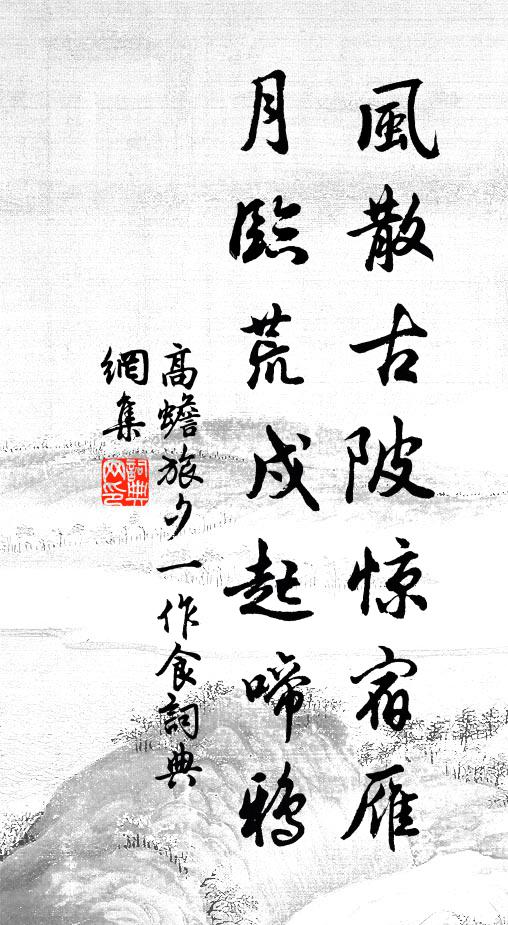 風散古陂惊宿雁
月臨荒戍起啼鴉
高蟾旅夕一作食詞典
網集
詞典網印